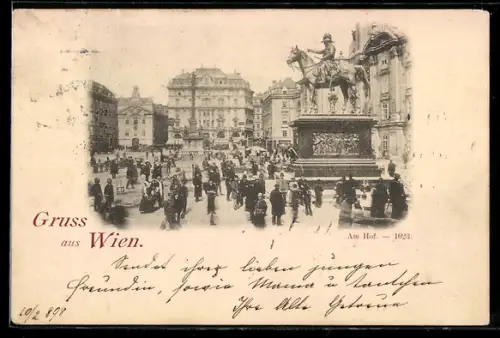 Gruss
aus Wien.
Am Hof. — 1023.
Sendet ihrer lieben jungen
Freundin, sowie Mama u Tantchen
Ihre Alte Getreue
20/2 898